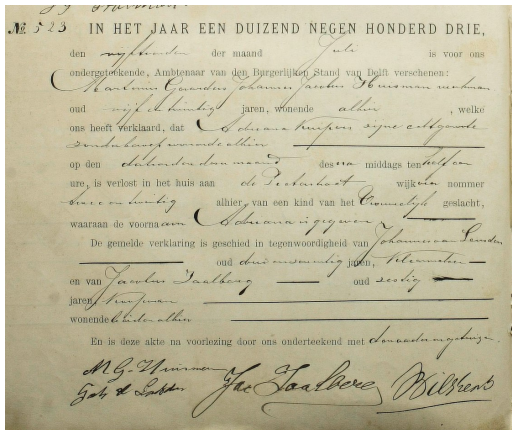 No. 523 IN HET JAAR EEN DUIZEND NEGEN HONDERD DRIE,
den vijftienden der maand Juli is voor ons
ondergeteekende, Ambtenaar van den Burgerlijken Stand van Delft verschenen:
Martinus Gerardus Johannes Jacobus Huisman werkman
oud vijf en twintig jaren, wonende alhier, welke
ons heeft verklaard, dat Adriana Kuipers zijne echtgenoote
zonder beroep wonende alhier
op den dertienden dezer maand des na middags ten half een
ure, is verlost in het huis aan de wijk vier nommer
twee en twintig alhier, van een kind van het Vrouwelijk geslacht,
waaraan de voornaam Adriana is gegeven
De gemelde verklaring is geschied in tegenwoordigheid van Johannes van
oud jaren,
en van Jacobus Taalberg oud zestig
jaren, Kuipman
wonende beiden alhier
En is deze akte na voorlezing door ons onderteekend met de
M. G. Huisman
Jac Taalberg